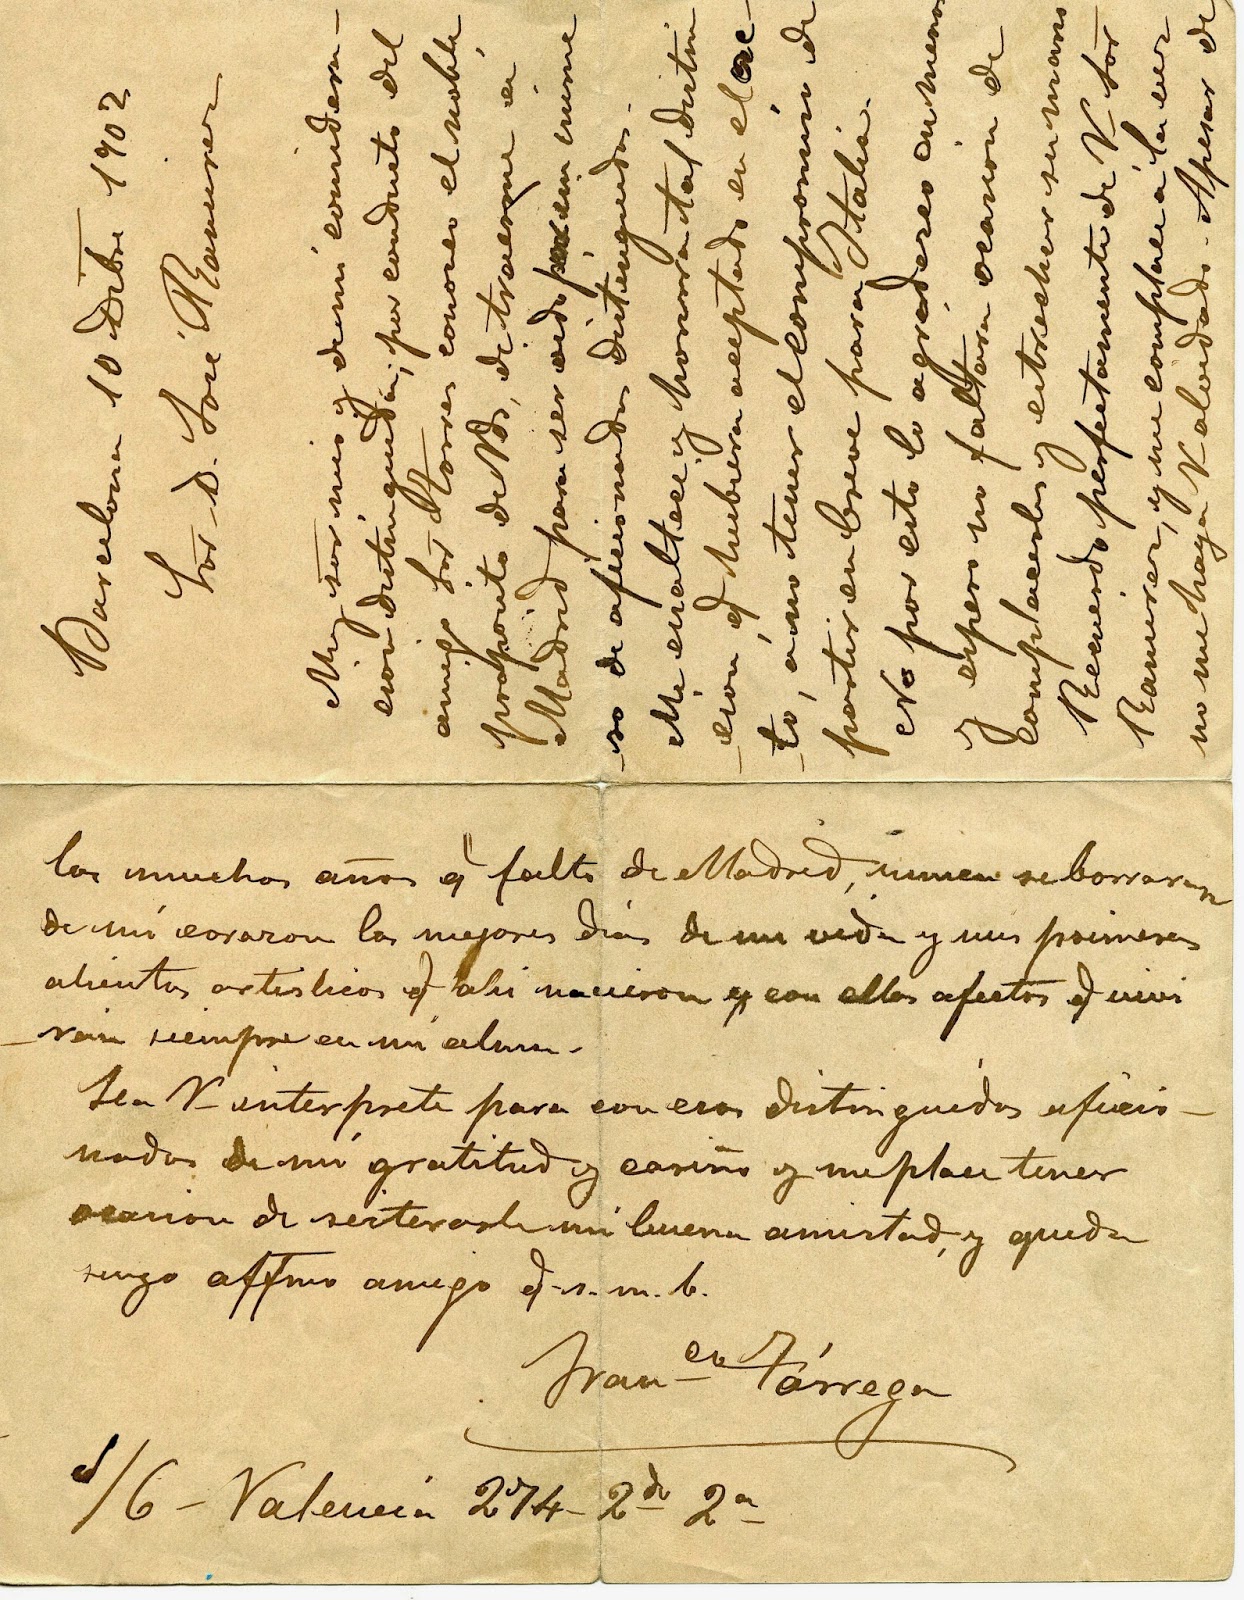 Barcelona 10 Dibre 1902
Sor D. José Ramirez
Muy sor mio y de mi considera-
cion distinguida; por conducto del
amigo Sor Torres conoces el noble
proposito de Vds, de traerme á
Madrid para ser oido por un nume
-ro de aficionados distinguidos.
Me enaltece y honra tal distin
-cion, q hubiera aceptado en el ac-
-to, á no tener el compromiso de
partir en breve para Italia.
No por esto lo agradezco en menos
y espero no faltara ocasion de
complacerles y estrechar su mano
Recuerdo perfectamente de V. Sor
Ramirez, y me complace á la vez
no me haya V. olvidado. Apesar de
los muchos años q falto de Madrid, nunca se borraran
de mi corazon los mejores dias de mi vida y mis primeros
alientos artisticos q alli nacieron y con ellos afectos q vivi
-ran siempre en mi alma.
Sea V interprete para con esos distinguidos aficio-
nados de mi gratitud y cariño y me place tener
ocasion de reiterarle mi buena amistad, y queda
suyo affmo amigo q. s. m. b.
Franco Tárrega
S/C - Valencia 274 - 2do 2a